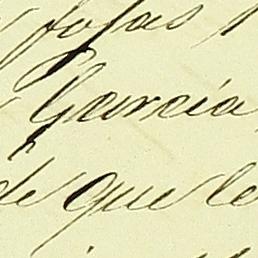 fojas 1
Garcia
de que le